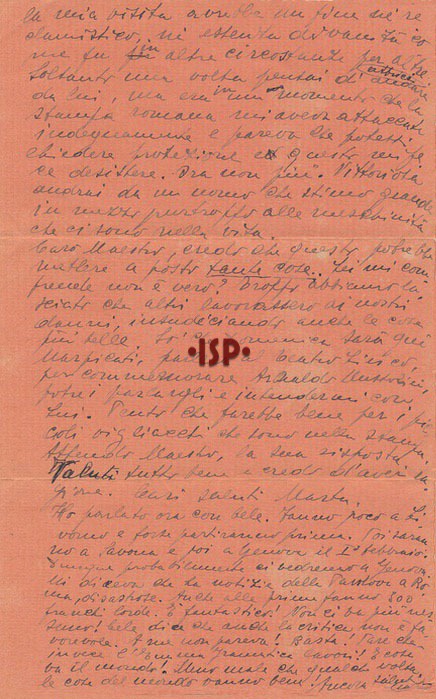 la mia visita avrebbe un fine nè re
clamistico, nè essenza di vanità co
me fu in altre circostanze per altri.
Soltanto una volta pensai di andare
da lui, ma era in un momento che la
stampa romana mi aveva attaccata
indegnamente e pareva che potessi
chiedere protezione e questo mi fe
ce desistere. Ora non più. Tuttavia
andrai da un uomo che stimo grande
in mezzo purtroppo alle meschinità
che ci sono nella vita.
Caro Maestro, credo che questo potrebbe
mettere a posto tante cose. Lei mi com
prende non è vero? Troppo abbiamo la
sciato che altri lavorassero ai nostri
danni, insudiciando anche le cose
più belle. So che Domenica sarà qui
Marpicati, al teatro
per commemorare Arnaldo Mussolini,
potrei parlargli e intendermi con
lui. Penso che farebbe bene per i pic
coli vigliacchi che sono nella stampa.
Attendo Maestro, la sua risposta.
Valuti tutto bene e credo d'aver ra
gione. Cari saluti Marta.
Ho parlato ora con Fanno poco a Li
vorno e forse partiranno prima. Poi saran
no a Savona e poi a Genova il 1° febbraio.
Dunque probabilmente ci vedremo a Genova.
Mi diceva che ha notizie della Pavlova a Ro
ma, disastrose. Anche alle prime fanno 800
franchi lorde. È fantastico! Non ci va più nes
suno! dice che anche la critica non è fa
vorevole. E me non pareva! Basta!
invece c'è Emma Gramatica È così
va il mondo! Meno male che qualche volta
le cose del mondo vanno bene! Ancora saluti
•ISP•